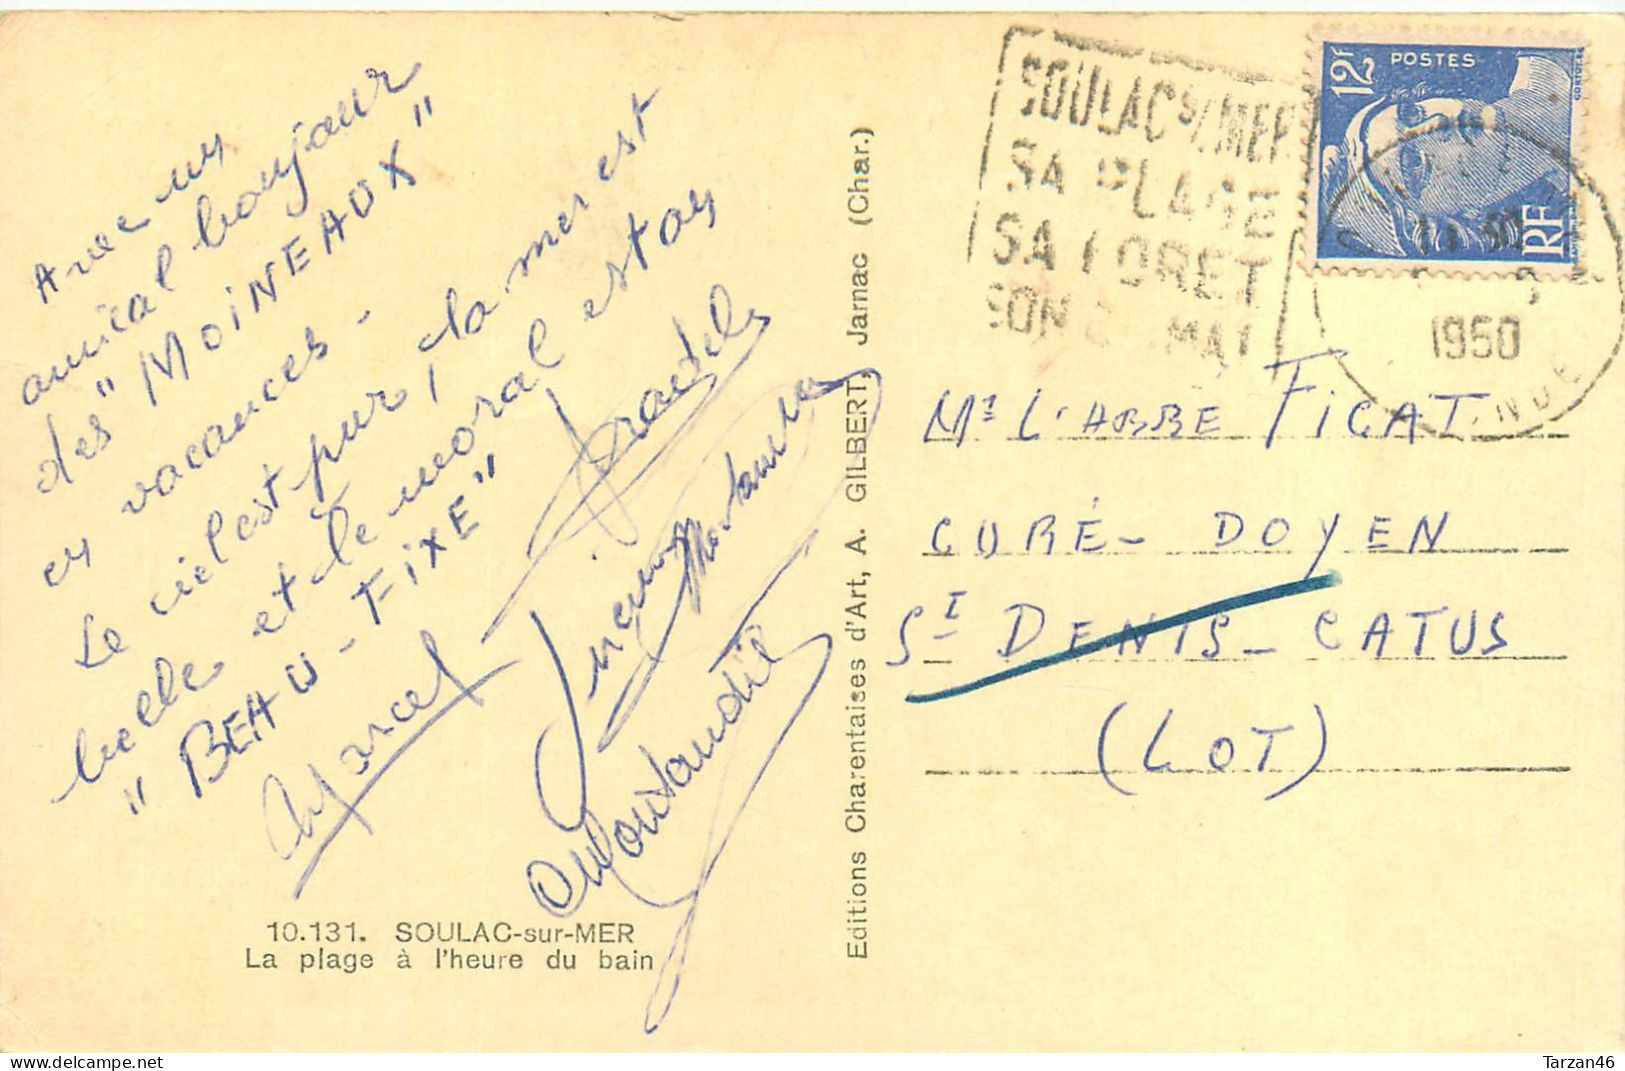 Avec un
amical bonjour
des "MOiNEAUX"
en vacances -
Le ciel est pur, la mer est
belle et le moral est au
"BEAU - FiXE"
Marcel
10.131. SOULAC-sur-MER
La plage à l'heure du bain
Editions Charentaises d'Art, A. GILBERT, Jarnac (Char.)
SOULAC S/MER
SA PLAGE
SA FORET
SON
12F
POSTES
RF
1950
Mr L'ABBE FiCAT
CURÉ - DOYEN
St DENIS - CATUS
(LOT)
Tarzan46